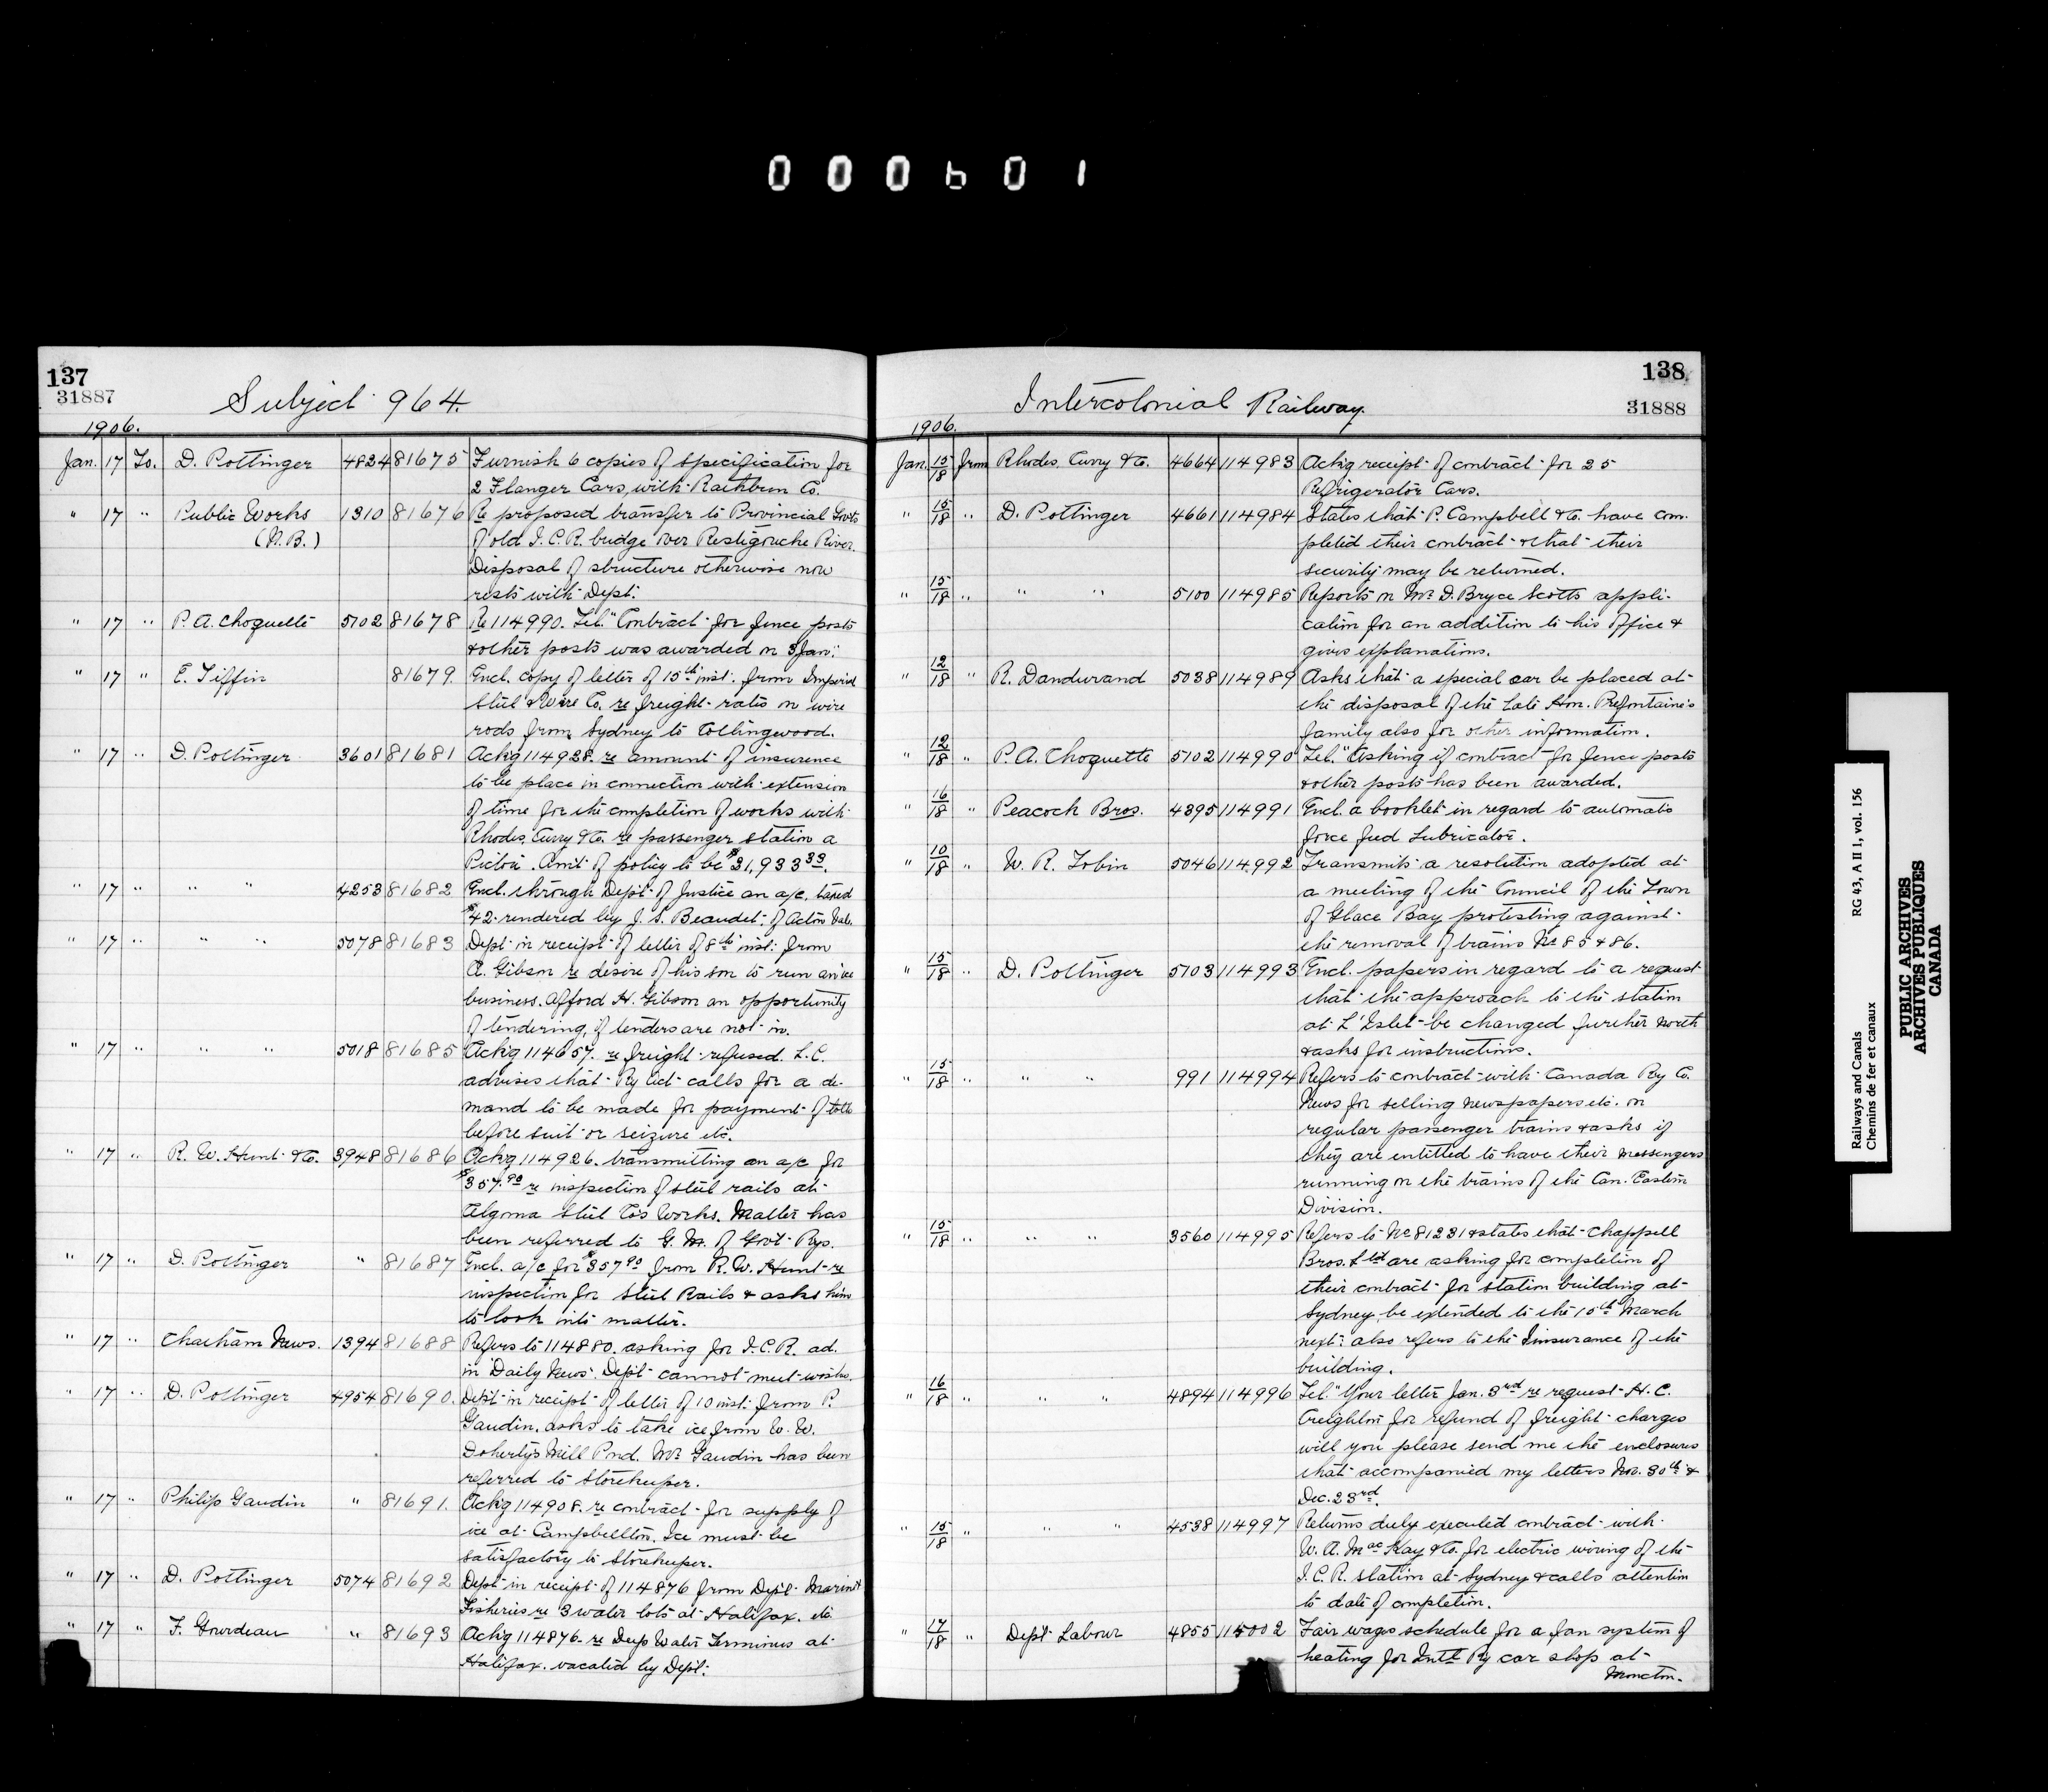 000601
137
31887
Subject 964.
1906.
Jan. 17 To. D. Pottinger 4824 81675 Furnish 6 copies of specification for
2 Flanger Cars, with Rathbun Co.
" 17 " Public Works 1310 81676 Re proposed transfer to Provincial Govts
(N.B.) of old I.C.R. bridge over Restigouche River.
Disposal of structure otherwise now
rests with Dept.
" 17 " P. A. Choquette 5102 81678 Re 114990. Tel. "Contract for fence posts
& other posts was awarded on 3 Jan."
" 17 " E. Tiffin 81679. Encl. copy of letter of 15th inst. from Imperial
Steel & Wire Co. re freight rates on wire
rods from Sydney to Collingwood.
" 17 " D. Pottinger 3601 81681 Ackg 114928. re amount of insurence
to be place in connection with extension
of time for the completion of works with
Rhodes, Curry & Co. re passenger station a
Pictou. Amt. of policy to be $31,933 33.
" 17 " " " 4253 81682 Encl. through Dept. of Justice an a/c. taxed
$42. rendered by J. S. Beaudet of Acton Vale.
" 17 " " " 5078 81683 Dept. in receipt of letter of 8th inst. from
A. Gibson re desire of his son to run an ice
business. Afford H. Gibson an opportunity
of tendering, if tenders are not in.
" 17 " " " 5018 81685 Ackg 114657. re freight refused. L.C.
advises that Ry Act calls for a de-
mand to be made for payment of tolls
before suit or seizure etc.
" 17 " R. W. Hunt & Co. 3948 81686 Ackg 114926. transmitting an a/c for
$357.90 re inspection of steel rails at
Algoma Steel Co's Works. Matter has
been referred to G. M. of Govt. Rys.
" 17 " D. Pottinger " 81687 Encl. a/c for $357 90 from R. W. Hunt re
inspection for Steel Rails & asks him
to look into matter.
" 17 " Chatham News. 1394 81688 Refers to 114880. asking for I.C.R. ad.
in Daily News. Dept. cannot meet wishes.
" 17 " D. Pottinger 4954 81690. Dept. in receipt of letter of 10 inst. from P.
Gaudin, asks to take ice from W. W.
Doherty's Mill Pond. Mr. Gaudin has been
referred to Storekeeper.
" 17 " Philip Gaudin " 81691. Ackg 114908. re contract for supply of
ice at Campbellton. Ice must be
satisfactory to Storekeeper.
" 17 " D. Pottinger 5074 81692 Dept. in receipt of 114876 from Dept. Marine &
Fisheries re 3 water lots at Halifax. etc
" 17 " F. Gourdeau " 81693 Ackg 114876. re Deep Water Terminus at
Halifax. vacated by Dept.
138
31888
Intercolonial Railway.
1906.
Jan. 15/18 from Rhodes, Curry & Co. 4664 114983 Ackg receipt of contract for 25
Refrigerator Cars.
" 15/18 " D. Pottinger 4661 114984 States that P. Campbell & Co. have com-
pleted their contract & that their
security may be returned.
" 15/18 " " " 5100 114985 Reports on Mr. D. Bryce Scott's appli-
cation for an addition to his office &
gives explanations.
" 12/18 " R. Dandurand 5038 114989 Asks that a special car be placed at
the disposal of the Late Hon. Prefontaine's
family also for other information.
" 12/18 " P. A. Choquette 5102 114990 Tel. "Asking if contract for fence posts
& other posts has been awarded.
" 16/18 " Peacock Bros. 4395 114991 Encl. a booklet in regard to automatic
force feed Lubricator.
" 10/18 " W. R. Tobin 5046 114992 Transmits a resolution adopted at
a meeting of the Council of the Town
of Glace Bay protesting against
the removal of trains No 85 & 86.
" 15/18 " D. Pottinger 5103 114993 Encl. papers in regard to a request
that the approach to the station
at L'Islet be changed further north
& asks for instructions.
" 15/18 " " " 991 114994 Refers to contract with Canada Ry Co.
News for selling newspapers etc. on
regular passenger trains & asks if
they are entitled to have their messengers
running on the trains of the Can. Eastern
Division.
" 15/18 " " " 3560 114995 Refers to No 81231 & states that Chappell
Bros. & Ltd are asking for completion of
their contract for station building at
Sydney, be extended to the 15th March
next: also refers to the Iinsurance of the
building.
" 16/18 " " " 4894 114996 Tel. "Your letter Jan. 3rd re request H. C.
Creighton for refund of freight charges
will you please send me the enclosures
that accompanied my letters Nov. 30th &
Dec. 23rd.
" 15/18 " " " 4538 114997 Returns duly executed contract with
W. A. MacKay & Co. for electric wiring of the
I.C.R. station at Sydney & calls attention
to date of completion.
" 17/18 " Dept. Labour 4855 115002 Fair wages schedule for a fan system of
heating for Intl Ry car shop at
Moncton.
Railways and Canals RG 43, A II 1, vol. 156
Chemins de fer et canaux
PUBLIC ARCHIVES
ARCHIVES PUBLIQUES
CANADA